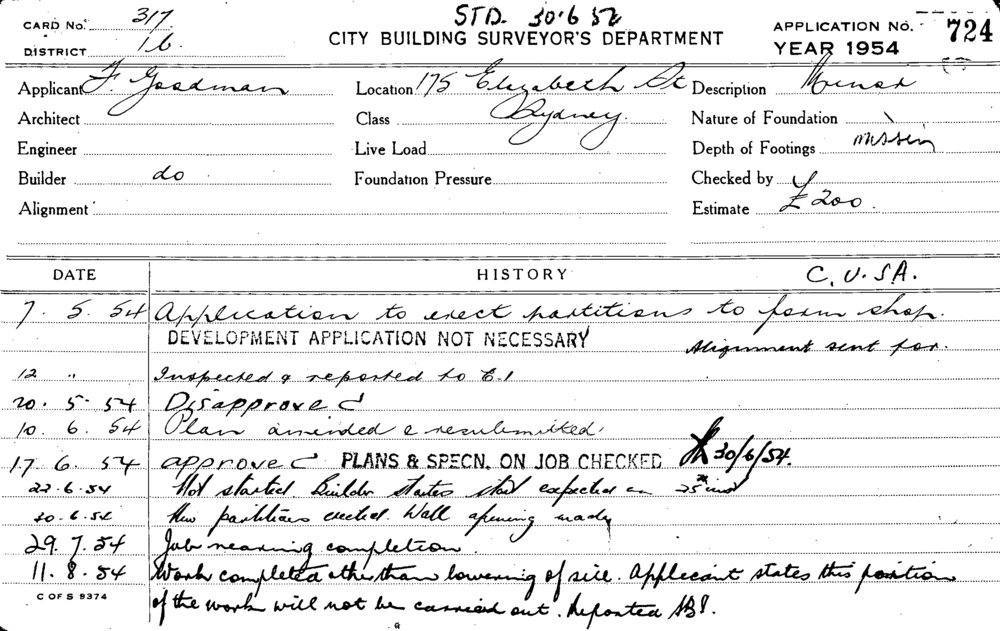 STD. 30.6.52
CARD No. 317
DISTRICT 16.
CITY BUILDING SURVEYOR'S DEPARTMENT
APPLICATION No. 724
YEAR 1954
Applicant F. Goodman
Location 175 Elizabeth St
Description Minor
Architect
Class Sydney.
Nature of Foundation
Engineer
Live Load
Depth of Footings
Builder do
Foundation Pressure
Checked by
Alignment
Estimate £200.
DATE HISTORY C.U.SA.
7. 5. 54 Application to erect partitions to form shop.
DEVELOPMENT APPLICATION NOT NECESSARY Alignment sent for.
12 " Inspected & reported to E.I
20. 5. 54 Disapproved
10. 6. 54 Plan amended & resubmitted.
17. 6. 54 approved PLANS & SPECN. ON JOB CHECKED 30/6/54.
22.6.54 Not started Builder states start expected on 25th inst
30.6.54 New partitions erected. Wall opening made
29. 7. 54 Job nearing completion.
11. 8. 54 Work completed other than lowering of sill. Applicant states this portion
of the work will not be carried out. Reported
C OF S 9374